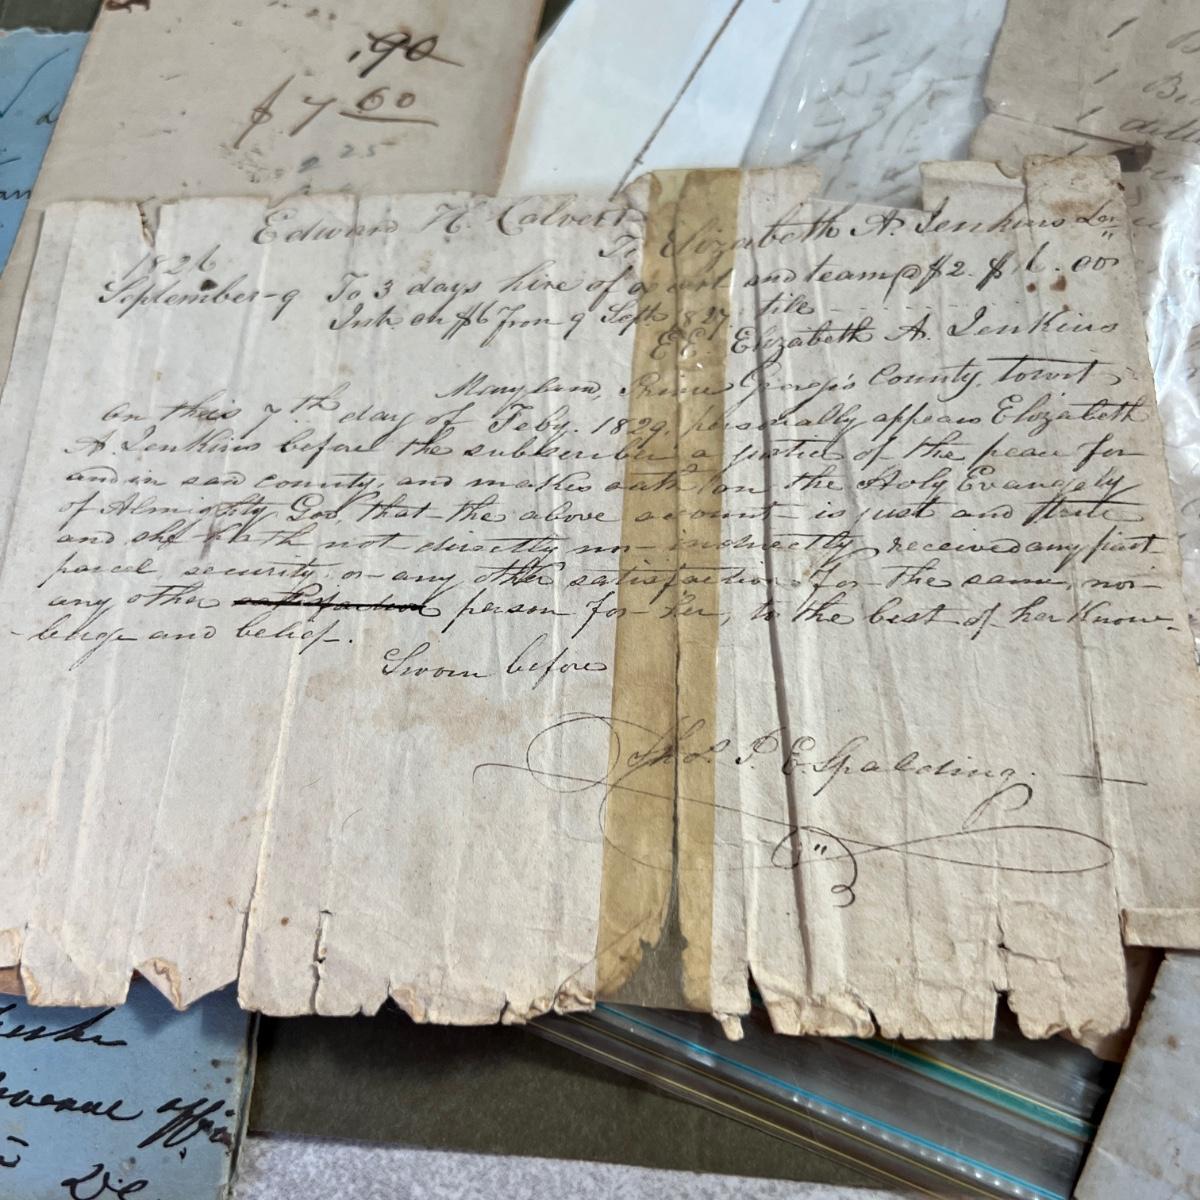 .90
$ 7 60
2 25
Edward H. Calvert
To Elizabeth A. Jenkins Dr
1826
September-9 To 3 days hire of a cart and team @ $2. $ 6.00
Intr. on $6 from 9 Sept. 1827 till
E.E. Elizabeth A. Jenkins
Maryland, Prince George's County towit
On this 7th day of Feby. 1829, personally appears Elizabeth
A. Jenkins before the subscriber a justice of the peace for
and in said county, and makes oath on the Holy Evangely
of Almighty God, that the above account is just and true
and she hath not directly nor indirectly received any part
parcel security, or any other satisfaction for the same, nor
any other satisfaction person for her, to the best of her know-
-ledge and belief.
Sworn before
Thos. P. E. Spalding.